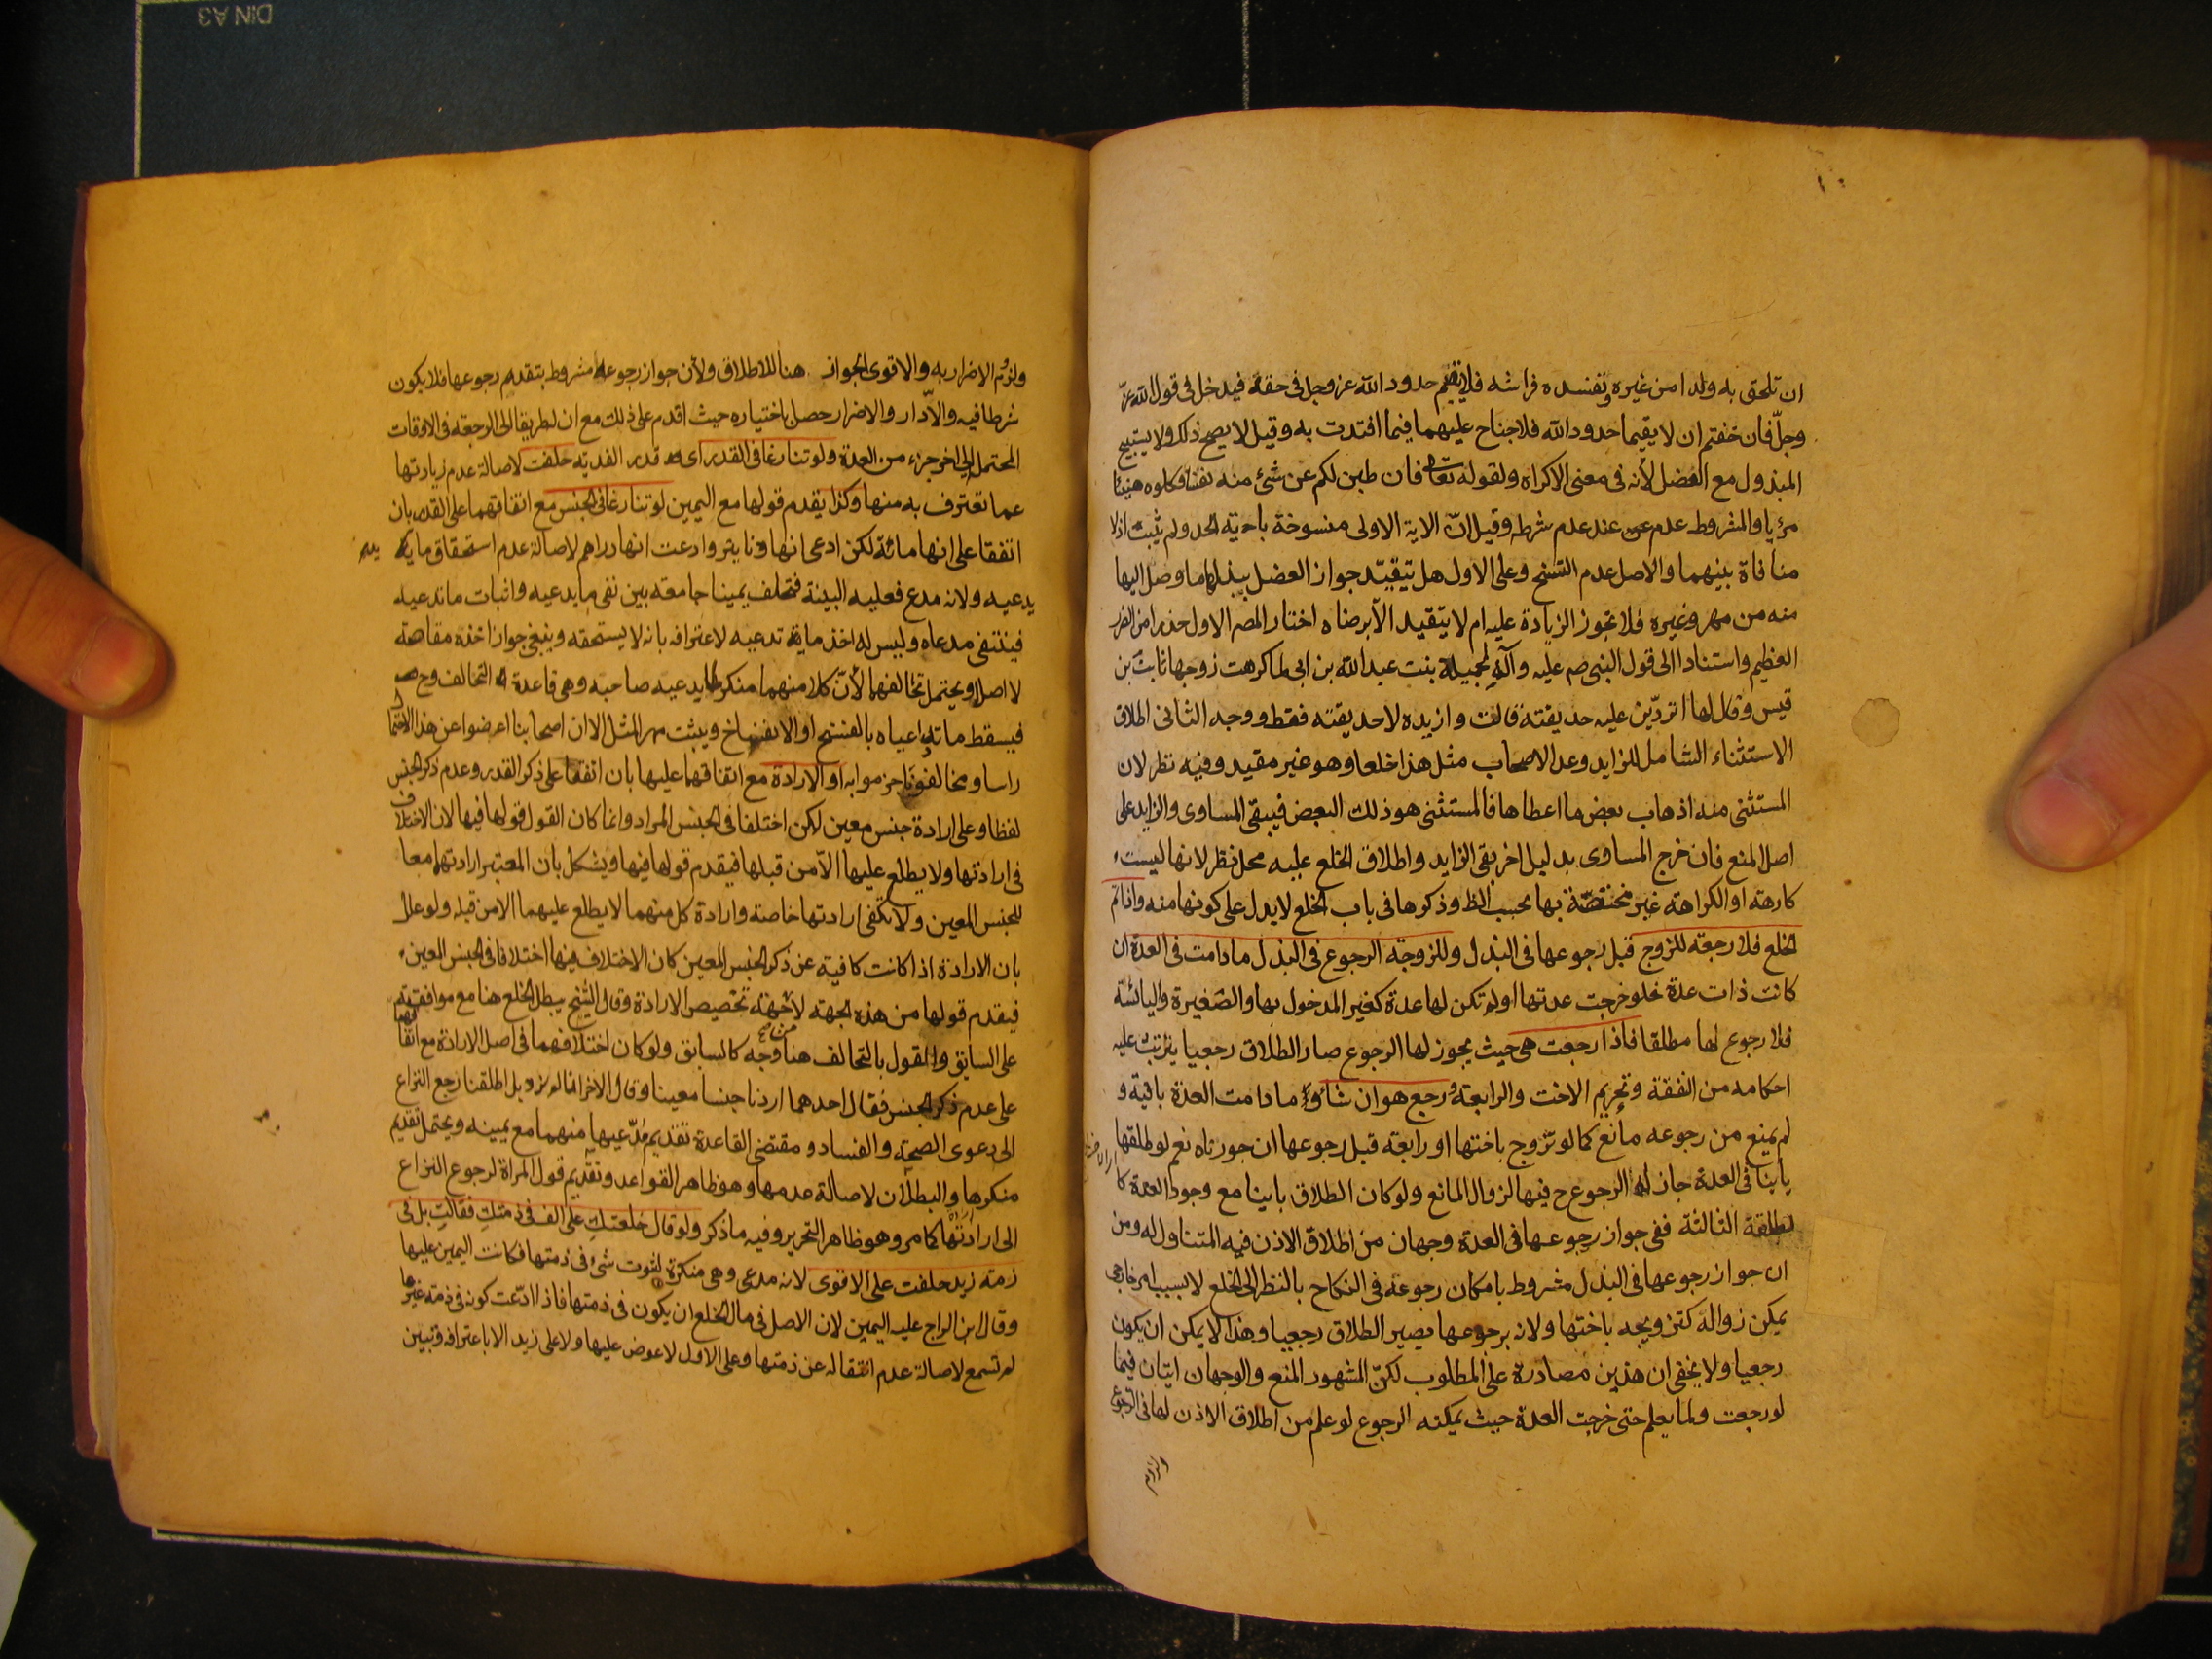 ان تلحق به ولدا من غيره وتفسده فراشه فلا يقيم حدود الله عز وجل في حقه فيدخل في قول الله عز
وجل فان خفتم ان لا يقيما حدود الله فلا جناح عليهما فيما افتدت به وقيل لا يصح ذلك ولا يستبيح
المبذول مع العضل لأنه في معنى الاكراه ولقوله تعالى فان طبن لكم عن شئ منه نفسا فكلوه هنيئا
مريا والمشروط عدم عند عدم شرطه وقيل ان الاية الاولى منسوخة باية الحد ولم يثبت اذ لا
منافاة بينهما والاصل عدم النسخ وعلى الاول هل يتقيد جواز العضل ببذلها ما وصل اليها
منه من مهر وغيره فلا يجوز الزيادة عليه ام لا يتقيد الا برضاه اختار المصر الاول حذرا من الضرر
العظيم واستنادا الى قول النبي صم عليه وآله لجميلة بنت عبد الله بن ابي لما كرهت زوجها ثابت بن
قيس وقال لها اتردين عليه حديقته قالت وازيده لا حديقته فقط ووجه الثاني اطلاق
الاستثناء الشامل للزايد وعد الاصحاب مثل هذا خلعا وهو غير مقيد وفيه نظر لان
المستثنى منه اذهاب بعض ما اعطاها فالمستثنى هو ذلك البعض فيبقى المساوى والزايد على
اصل المنع فان خرج المساوى بدليل اخر بقى الزايد واطلاق الخلع عليه محل نظر لانها ليست
كارهة او الكراهة غير مختصة بها بحسب الظ وذكرها في باب الخلع لا يدل على كونها منه واذا تم
الخلع فلا رجعة للزوج قبل رجوعها في البذل وللزوجة الرجوع في البذل ما دامت في العدة ان
كانت ذات عدة فلو خرجت عدتها او لم تكن لها عدة كغير المدخول بها والصغيرة واليائسة
فلا رجوع لها مطلقا فاذا رجعت هى حيث يجوز لها الرجوع صار الطلاق رجعيا يترتب عليه
احكامه من النفقة وتحريم الاخت والرابعة ورجع هو ان شاء ما دامت العدة باقية و
لم يمنع من رجوعه مانع كما لو تزوج باختها او رابعة قبل رجوعها ان جوزناه نعم لو طلقها
باينا في العدة جاز له الرجوع ح فيها لزوال المانع ولو كان الطلاق باينا مع وجود العدة كا
لطلقة الثالثة ففي جواز رجوعها في العدة وجهان من اطلاق الاذن فيه المتناول له ومن
ان جواز رجوعها في البذل مشروط بامكان رجوعه في النكاح بالنظر الى الخلع لا بسبب امر خارجى
يمكن زواله كتزويجه باختها ولانه برجوعها يصير الطلاق رجعيا وهذا لا يمكن ان يكون
رجعيا ولا يخفى ان هذين مصادرة على المطلوب لكن المشهور المنع والوجهان ايتان فيما
لو رجعت ولما يعلم حتى خرجت العدة حيث يمكنه الرجوع لو علم من اطلاق الاذن لها في الرجوع
ولزوم الاضرار به والاقوى الجواز هنا للاطلاق ولأن جواز رجوعه مشروط بتقدم رجوعها فلا يكون
شرطا فيه والا دار والاضرار حصل باختياره حيث اقدم على ذلك مع ان له طريقا الى الرجعة في الاوقات
المحتمل الى اخر جزء من العدة ولو تنازعا في القدر اى قدر الفدية حلفت لاصالة عدم زيادتها
عما تعترف به منها وكذا يقدم قولها مع اليمين لو تنازعا في الجنس مع اتفاقهما على القدر بان
اتفقا على انها مائة لكن ادعى انها دنانير وادعت انها دراهم لاصالة عدم استحقاق ما
يدعيه ولانه مدع فعليه البينة فتحلف يمينا جامعة بين نفى ما يدعيه واثبات ما تدعيه
فينتفى مدعاه وليس له اخذ ما تدعيه لاعترافه بانه لا يستحقه وينبغى جواز اخذه مقاصة
لا اصلا ويحتمل تحالفهما لأن كلا منهما منكر لما يدعيه صاحبه وهى قاعدة التحالف وح
فيسقط ما تداعياه بالفسخ او الانفساخ ويثبت مهر المثل الا ان اصحابنا اعرضوا عن هذا الاحتما
راسا ومخالفونا جزموا به او الارادة مع اتفاقهما عليها بان اتفقا على ذكر القدر وعدم ذكر الجنس
لفظا وعلى ارادة جنس معين لكن اختلفا في الجنس المراد وانما كان القول قولها فيها لان الاختلاف
في ارادتها ولا يطلع عليها الا من قبلها فيقدم قولها فيها ويشكل بان المعتبر ارادتهما معا
للجنس المعين ولا يكفى ارادتها خاصة وارادة كل منهما لا يطلع عليهما الا من قبله ولو علل
بان الارادة اذا كانت كافية عن ذكر الجنس المعين كان الاختلاف فيها اختلافا في الجنس المعين
فيقدم قولها من هذه الجهة لا جهة تخصيص الارادة وقال الشيخ يبطل الخلع هنا مع موافقته
على السابق والقول بالتحالف هنا وجه كالسابق ولو كان اختلافهما في اصل الارادة مع اتفاقهما
على عدم ذكر الجنس فقال احدهما اردنا جنسا معينا وقال الاخر انا لم نرد بل اطلقنا رجع النزاع
الى دعوى الصحة والفساد ومقتضى القاعدة تقديم مدعيها منهما مع يمينه ويحتمل تقديم
منكرها والبطلان لاصالة عدمها وهو ظاهر القواعد وتقديم قول المراة لرجوع النزاع
الى ارادتها كما مر وهو ظاهر التحرير وفيه ما ذكر ولو قال خلعتك على الف في ذمتك فقالت بل في
ذمة زيد حلفت على الاقوى لانه مدعى وهى منكرة لثبوت شئ في ذمتها فكانت اليمين عليها
وقال ابن البراج عليه اليمين لان الاصل في مال الخلع ان يكون في ذمتها فاذا ادعت كونه في ذمة غيرها
لم تسمع لاصالة عدم انتقاله عن ذمتها وعلى الاول لا عوض عليها ولا على زيد الا باعترافه وتبين